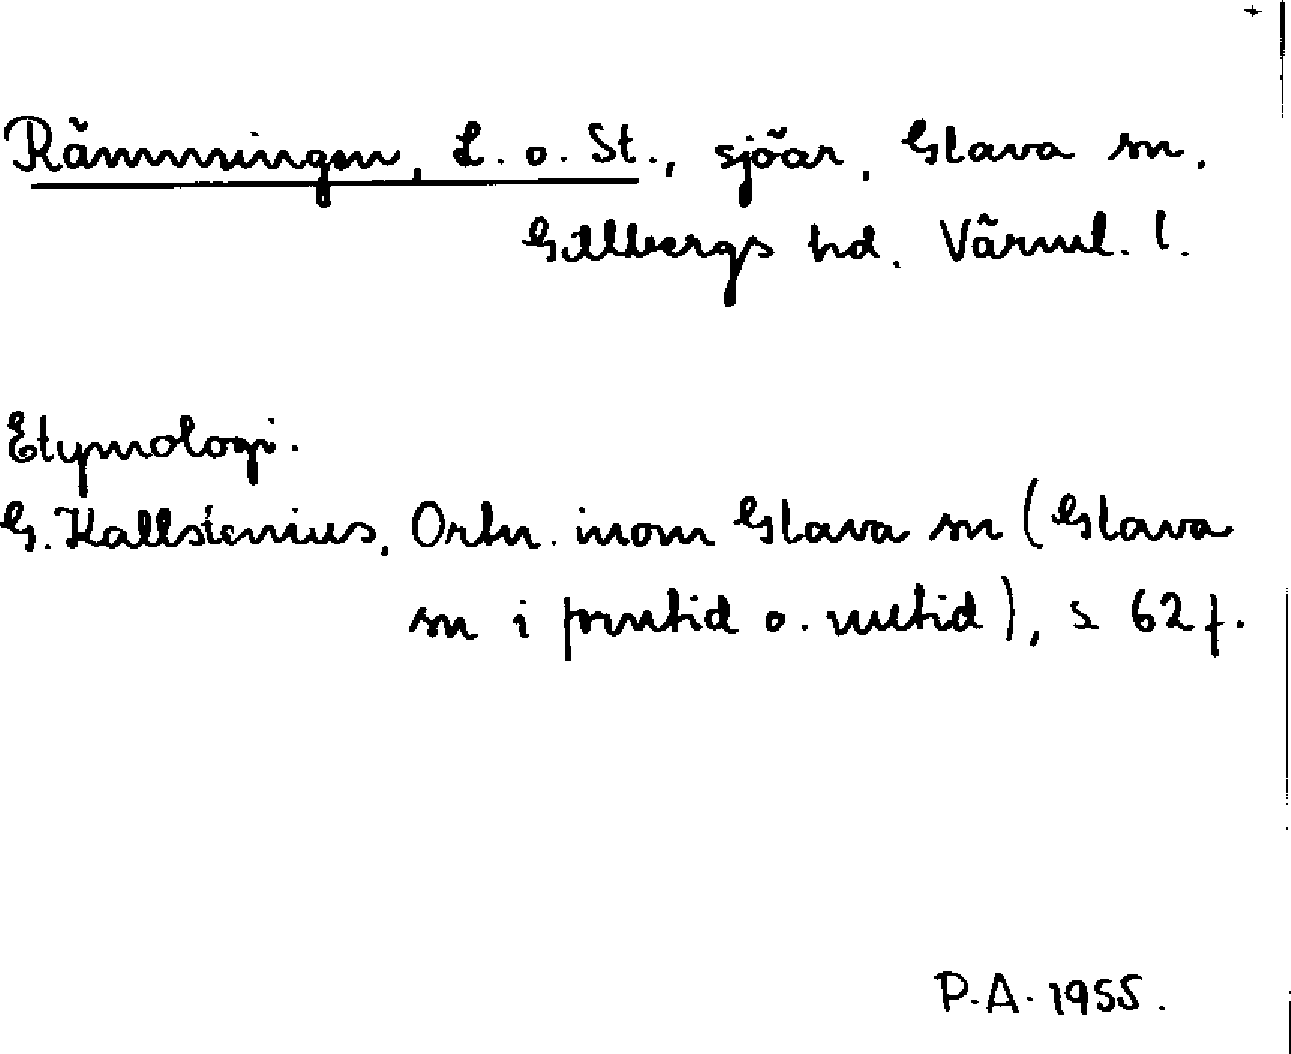 Rämmingen, L. o. St., sjöar, Glava sn,
Gillbergs hd. Värml. l.
Etymologi.
G. Kallstenius, Ortn. inom Glava sn (Glava
sn i forntid o. nutid), s 62 f.
P.A. 1955.